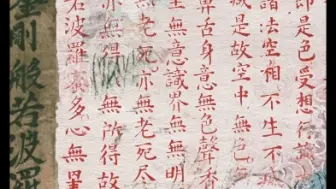 即是色受想行識
諸法空相不生不
減是故空中無色
鼻舌身意無色聲香
至無意識界無無明
無老死亦無老死盡
亦無得以無所得故
若波羅蜜多心無罣
剛般若波羅